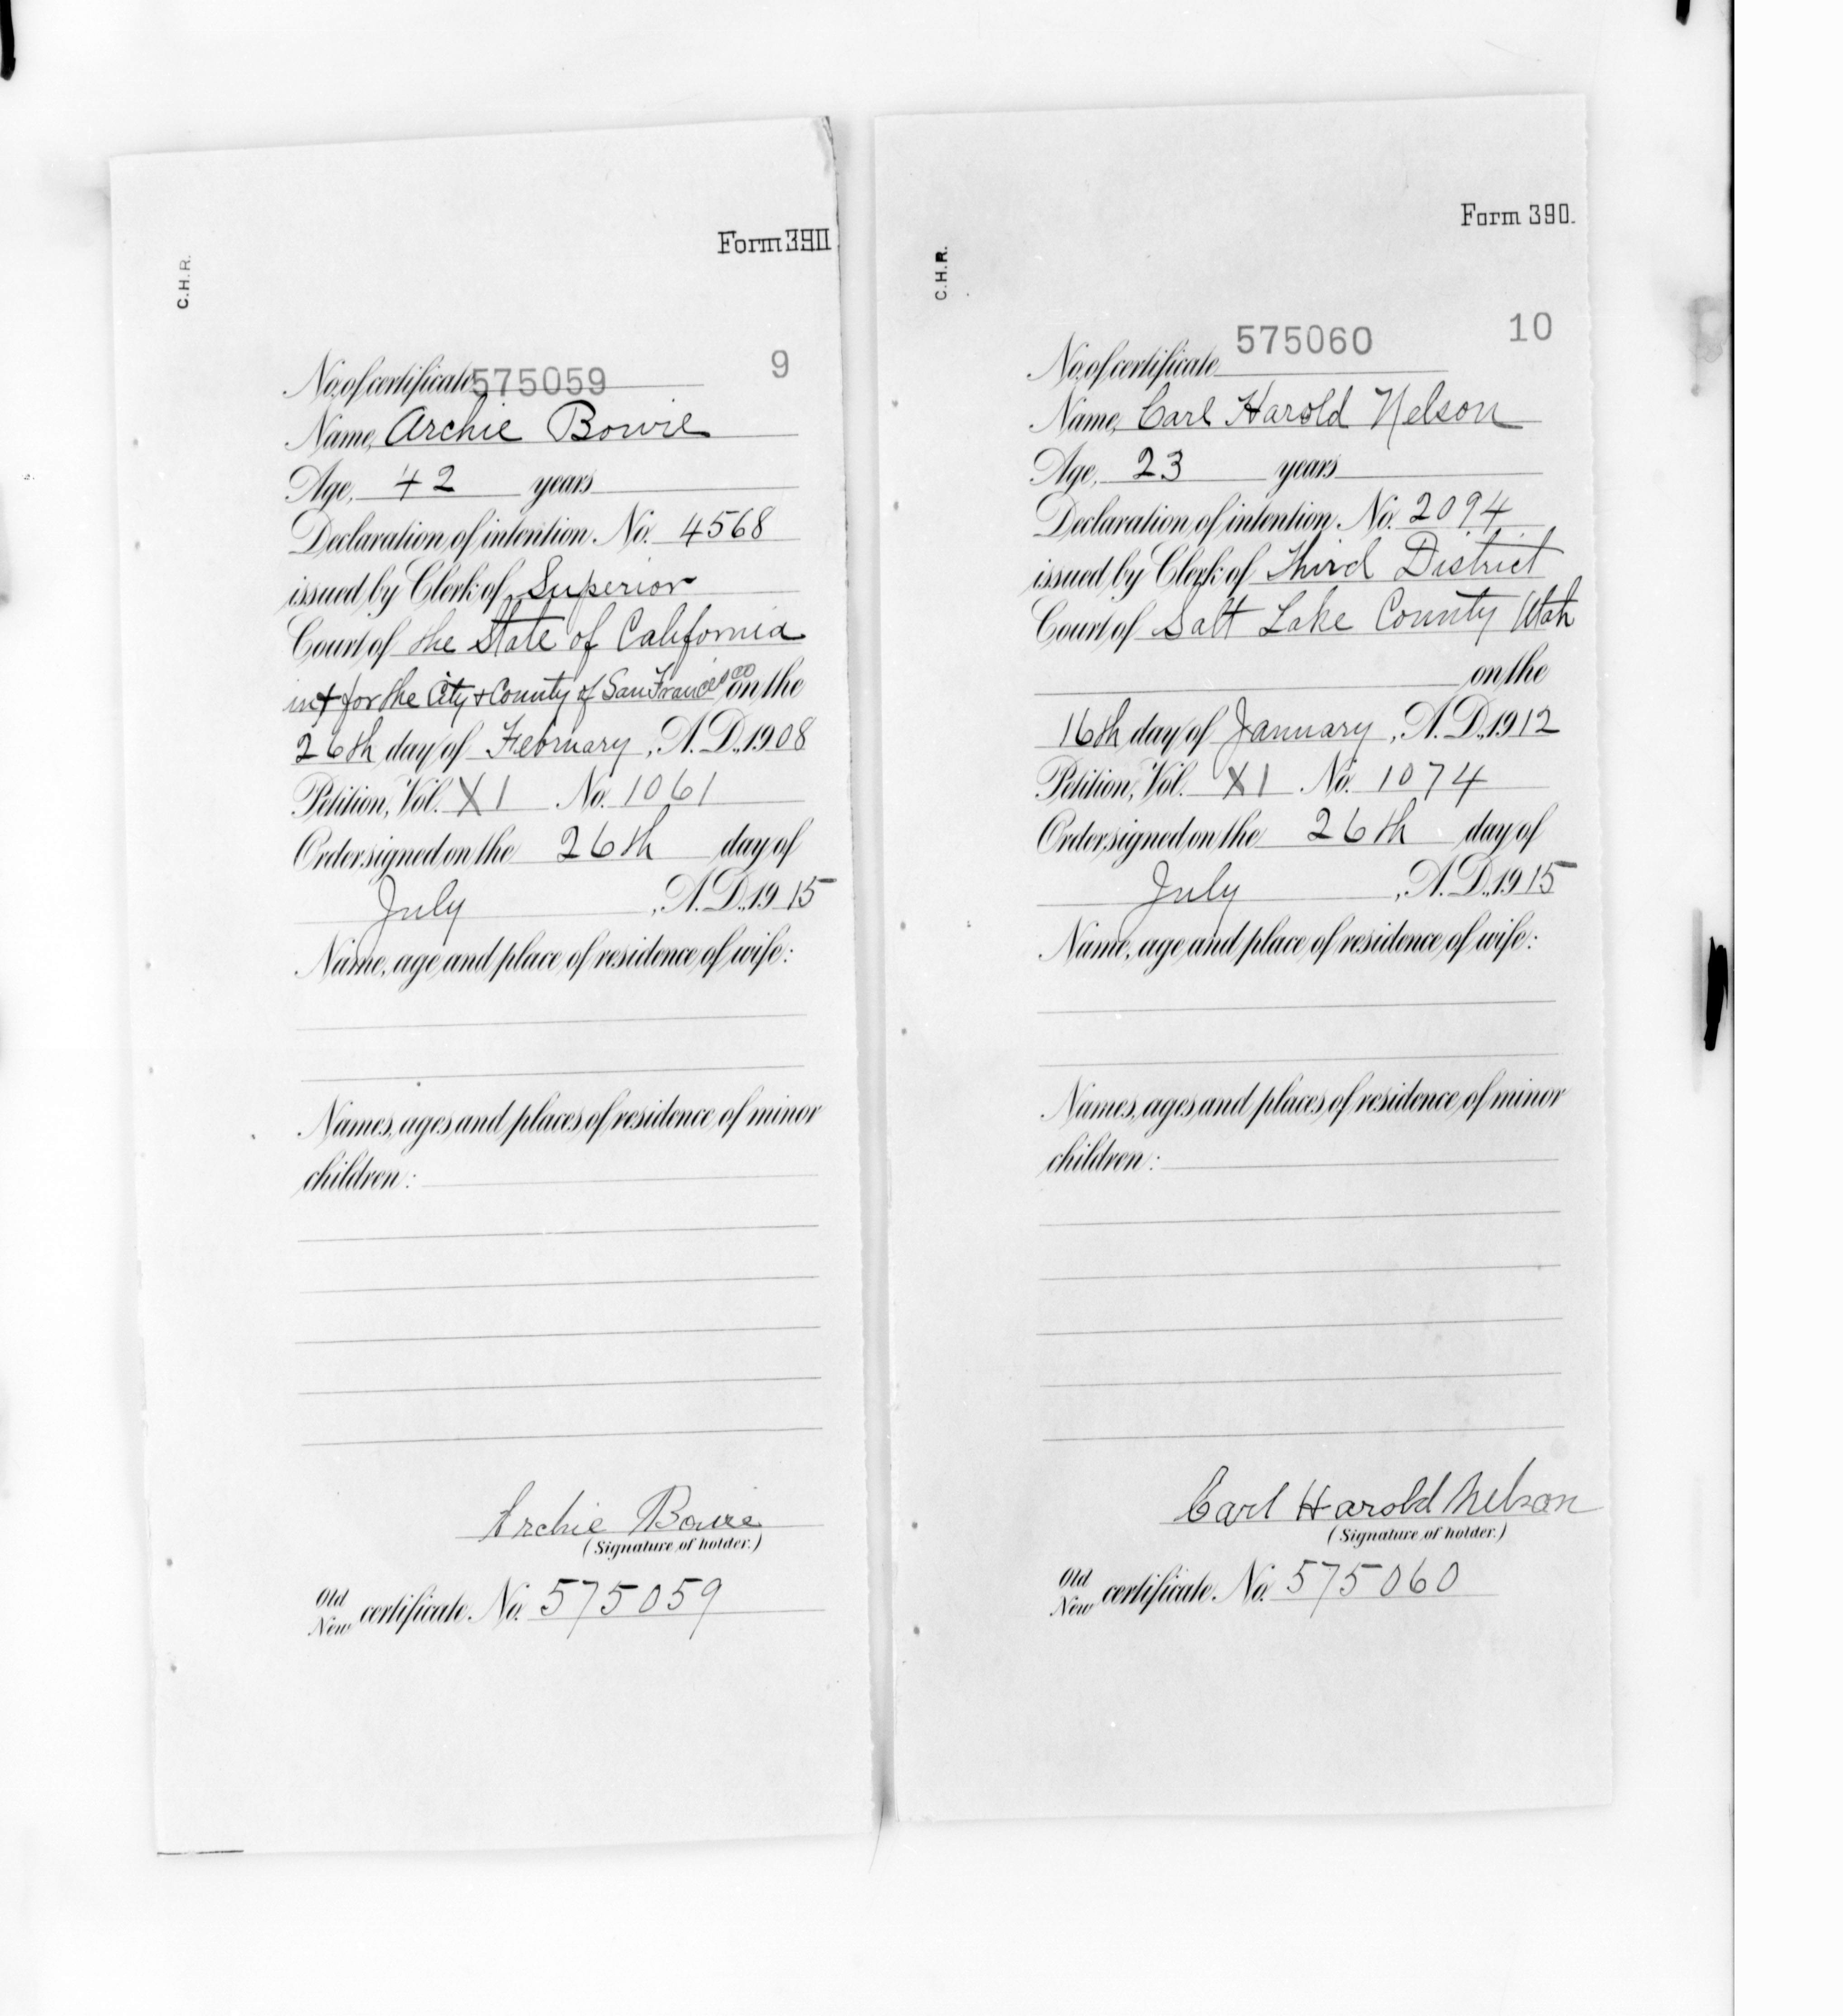 Form 390
C.H.R.
9
No. of certificate 575059
Name, Archie Bowie
Age, 42 years
Declaration of intention No. 4568
issued by Clerk of Superior
Court of the State of California
in & for the City & County of San Francisco on the
26th day of February, A. D., 1908
Petition, Vol. XI No. 1061
Order signed on the 26th day of
July, A. D., 1915
Name, age and place of residence of wife:
Names, ages and places of residence of minor
children:
Archie Bowie
(Signature of holder.)
Old
New certificate No. 575059
Form 390.
C.H.R.
10
No. of certificate 575060
Name, Carl Harold Nelson
Age, 23 years
Declaration of intention No. 2094
issued by Clerk of Third District
Court of Salt Lake County Utah
on the
16th day of January, A. D., 1912
Petition, Vol. XI No. 1074
Order signed on the 26th day of
July, A. D., 1915
Name, age and place of residence of wife:
Names, ages and places of residence of minor
children:
Carl Harold Nelson
(Signature of holder.)
Old
New certificate No. 575060